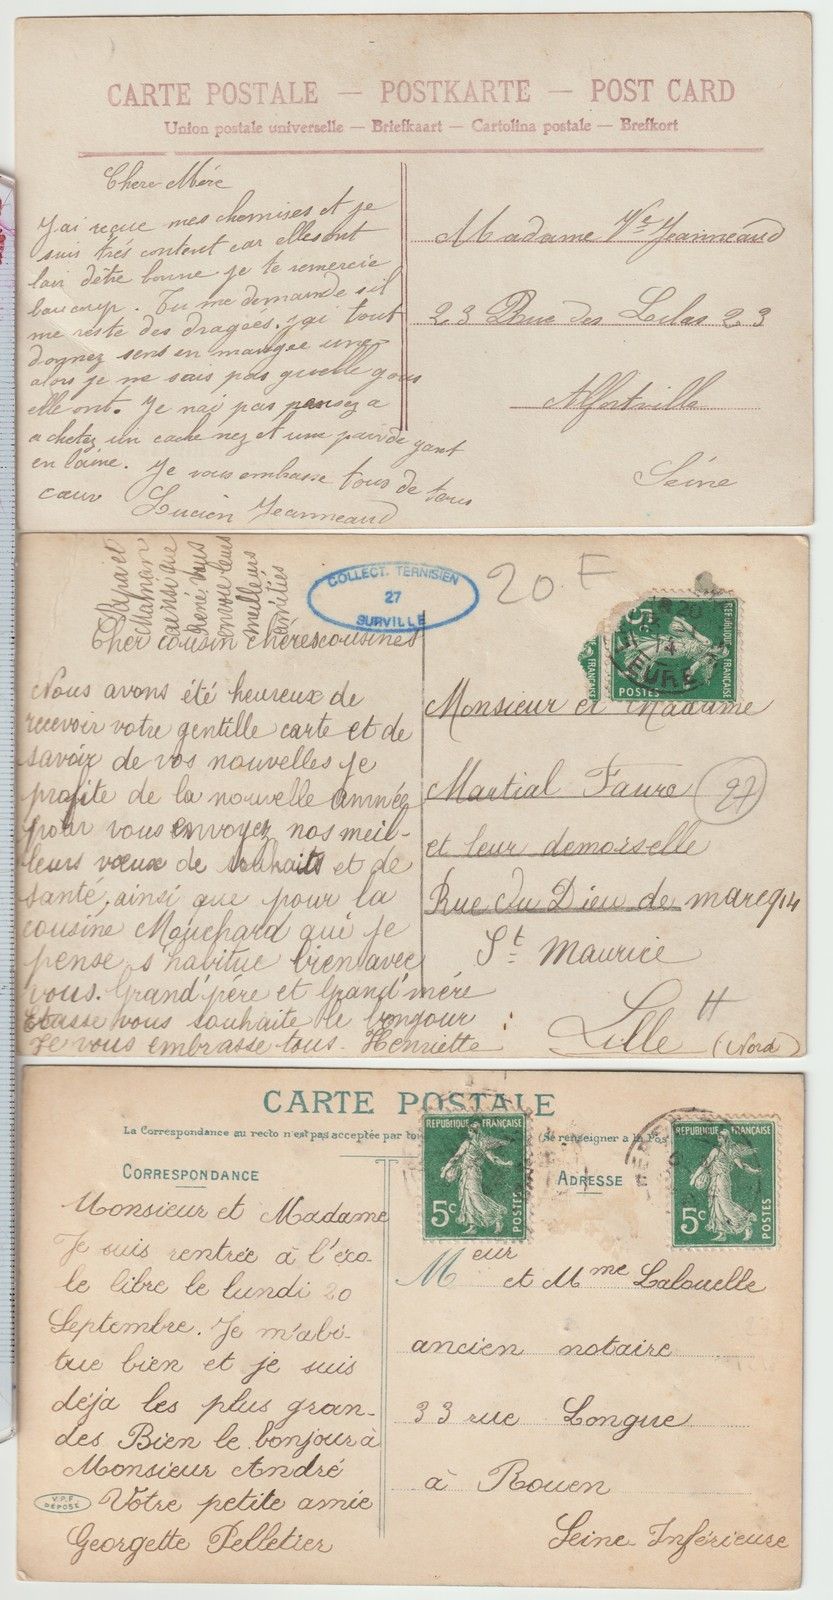 CARTE POSTALE — POSTKARTE — POST CARD
Union postale universelle — Briefkaart — Cartolina postale — Brefkort
Chere Mére
J'ai reçue mes chemises et je
suis trés content car elles ont
lair d'être bonne je te remercie
baucoup. Tu me demande sil
me reste des dragées. jai tout
donnez sens en mangée une
alors je ne sais pas quelle gous
elle ont. Je nai pas pensez a
achetez un cache nez et une pair de gant
en laine. Je vous embrasse tous de tous
cœur Lucien Jeanneaud
Madame Vve Jeanneaud
23 Rue des Lilas 23
Alfortville
Séine
Papa et
Maman
ainsi que
René, vous
envoie leurs
meilleurs
amitiés
COLLECT. TERNISIEN
27
SURVILLE
20 F
Cher cousin chères cousines
Nous avons été heureux de
recevoir votre gentille carte et de
savoir de vos nouvelles je
profite de la nouvelle année
pour vous envoyez nos meil-
leurs vœux de souhaits et de
santé, ainsi que pour la
cousine Mouchard qui je
pense s'habitue bien avec
vous. Grand'père et Grand'mère
vous souhaite le bonjour
Je vous embrasse tous. Henriette
5c
REPUBLIQUE
FRANÇAISE
POSTES
EURE
14
Monsieur et Madame
Martial Faure
27
et leur demoiselle
Rue du Dieu de marcq 14
St Maurice
Lille
(Nord)
CARTE POSTALE
La Correspondance au recto n'est pas acceptée par to
(Se renseigner a la Pos
CORRESPONDANCE
ADRESSE
REPUBLIQUE FRANÇAISE
5c
POSTES
REPUBLIQUE FRANÇAISE
5c
POSTES
Monsieur et Madame
Je suis rentrée à l'éco-
le libre le lundi 20
Septembre. Je m'abi-
tue bien et je suis
déja les plus gran-
des Bien le bonjour à
Monsieur André
Votre petite amie
Georgette Pelletier
V.P.F
DEPOSE
Meur et Mme Lalouelle
ancien notaire
33 rue Longue
à Rouen
Seine Inférieure